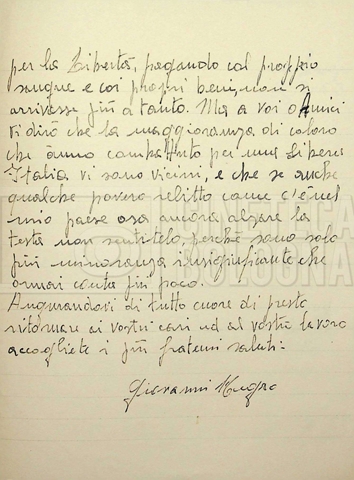 per la Libertà, pagando col proprio
sangue e coi propri beni, non si
arrivasse più a tanto. Ma a voi o Amici
vi dirò che la maggioranza di coloro
che ànno combattuto per una Libera
Italia vi sono vicini, e che se anche
qualche povero relitto come c'è nel
mio paese osa ancora alzare la
testa non sentitelo, perchè sono solo
più minoranza insignificante che
ormai conta più poco.
Augurandovi di tutto cuore di presto
ritornare ai vostri cari ed al vostro lavoro
accogliete i più fraterni saluti.
Giovanni